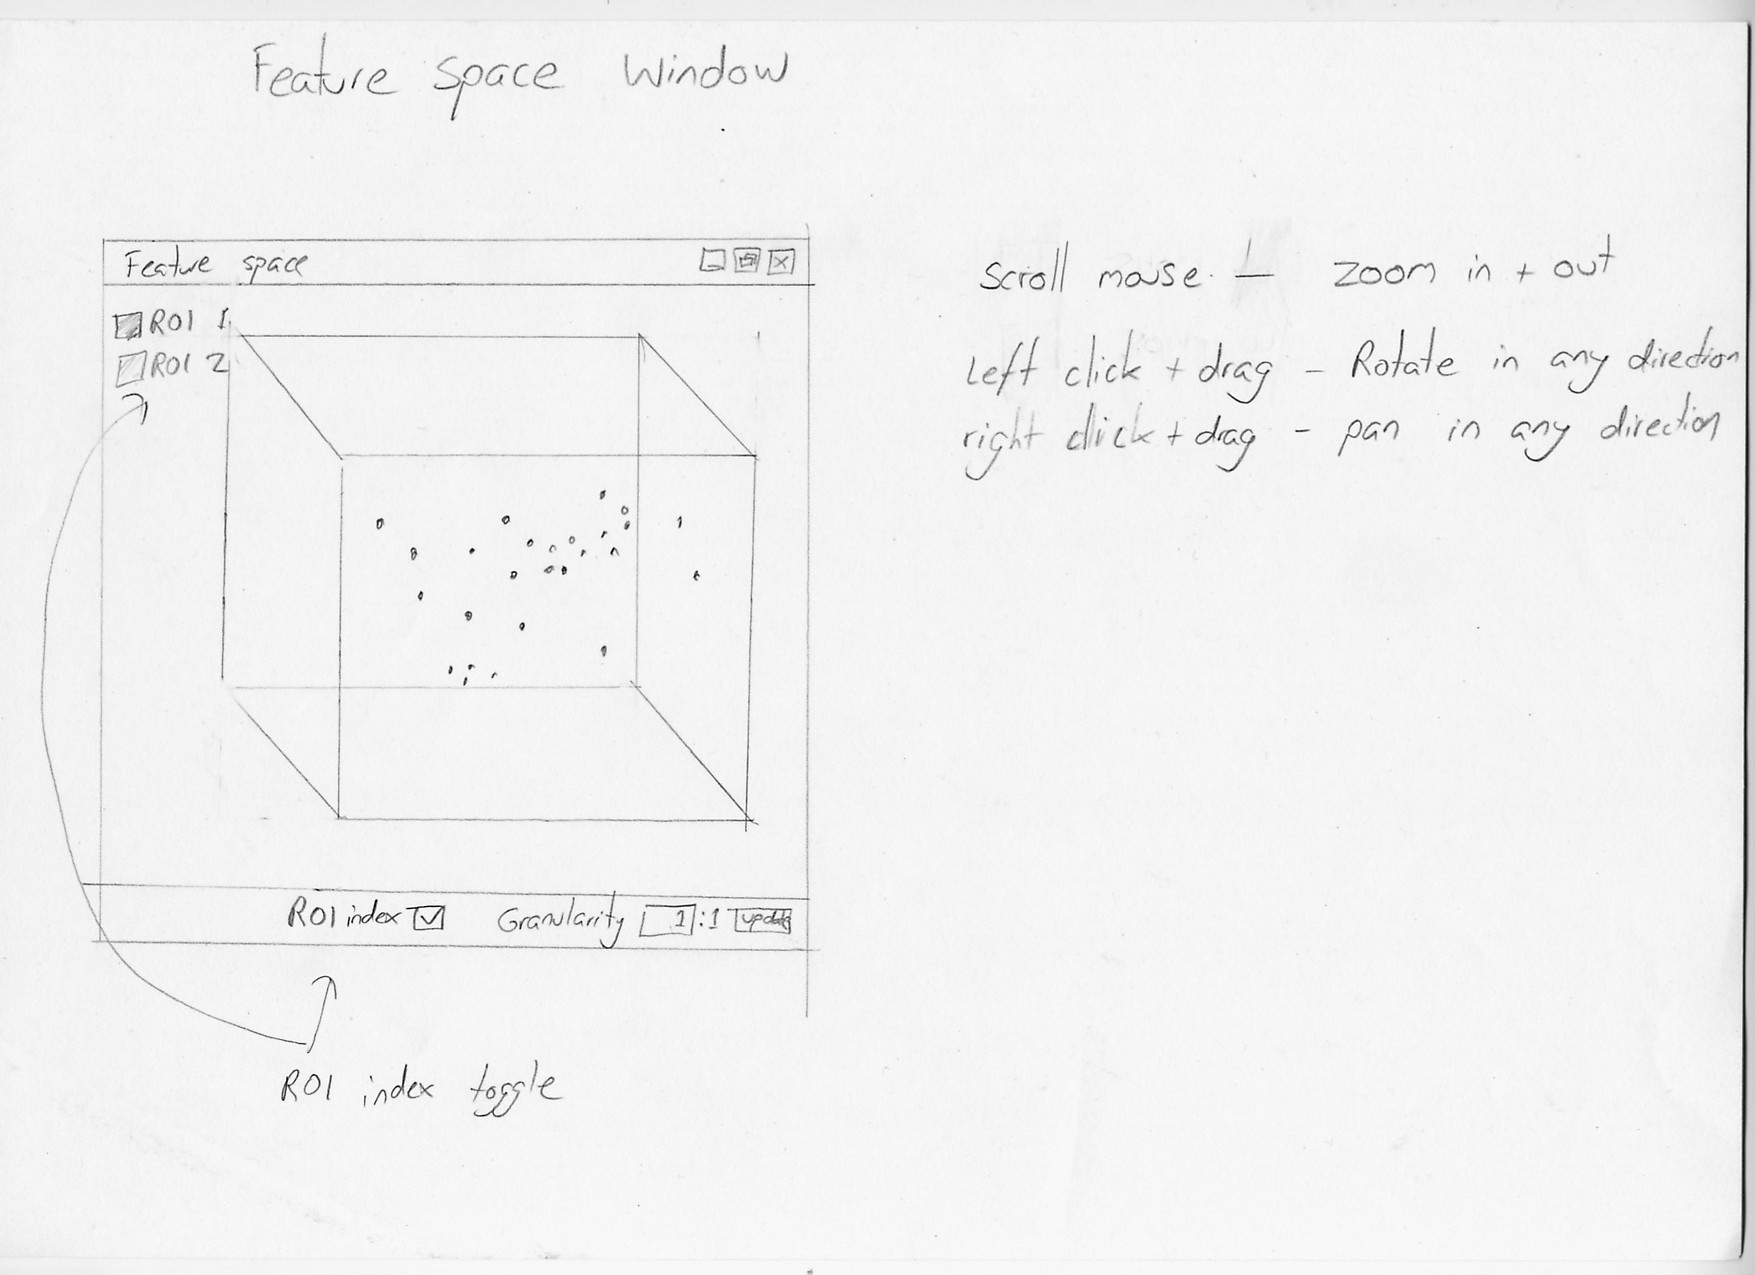 Feature space Window
Feature space
ROI 1
ROI 2
ROI index Granularity 1:1 update
ROI index toggle
Scroll mouse - zoom in + out
Left click + drag - Rotate in any direction
right click + drag - pan in any direction